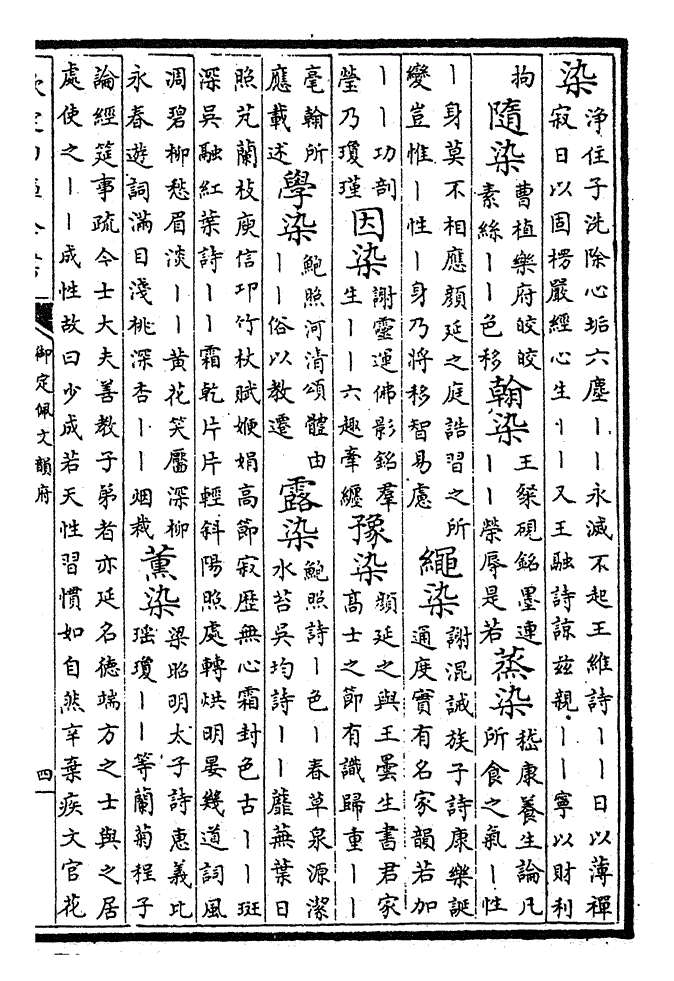 染淨住子洗除心垢六塵丨丨永滅不起王維詩丨丨日以薄禪
寂日以固楞嚴經心生丨丨又王融詩諒兹親丨丨寧以財利
拘
隨染曹植樂府皎皎
素絲丨丨色移
翰染王粲硯銘墨連
丨丨榮辱是若
蒸染嵇康養生論凡
所食之氣丨性
丨身莫不相應顔延之庭誥習之所
變豈惟丨性丨身乃將移智易慮
繩染謝混誡族子詩康樂誕
通度實有名家韻若加
丨丨功剖
瑩乃瓊瑾
因染謝靈運佛影銘羣
生丨丨六趣牽纏
豫染顔延之與王曇生書君家
高士之節有識歸重丨丨
毫翰所
應載述
學染鮑照河清頌體由
丨丨俗以教遷
露染鮑照詩丨色丨春草泉源潔
水苔吳均詩丨丨蘼蕪葉日
照芃蘭枝庾信卭竹杖賦㛹娟高節寂歴無心霜封色古丨丨斑
深吳融紅葉詩丨丨霜乾片片輕斜陽照處轉烘明晏幾道詞風
凋碧柳愁眉淡丨丨黄花笑靨深柳
永春遊詞滿目淺桃深杏丨丨烟裁
薰染梁昭明太子詩惠義比
瑶瓊丨丨等蘭菊程子
論經筵事疏今士大夫善教子弟者亦延名德端方之士與之居
處使之丨丨成性故曰少成若天性習慣如自然辛棄疾文官花
御定佩文韻府
四